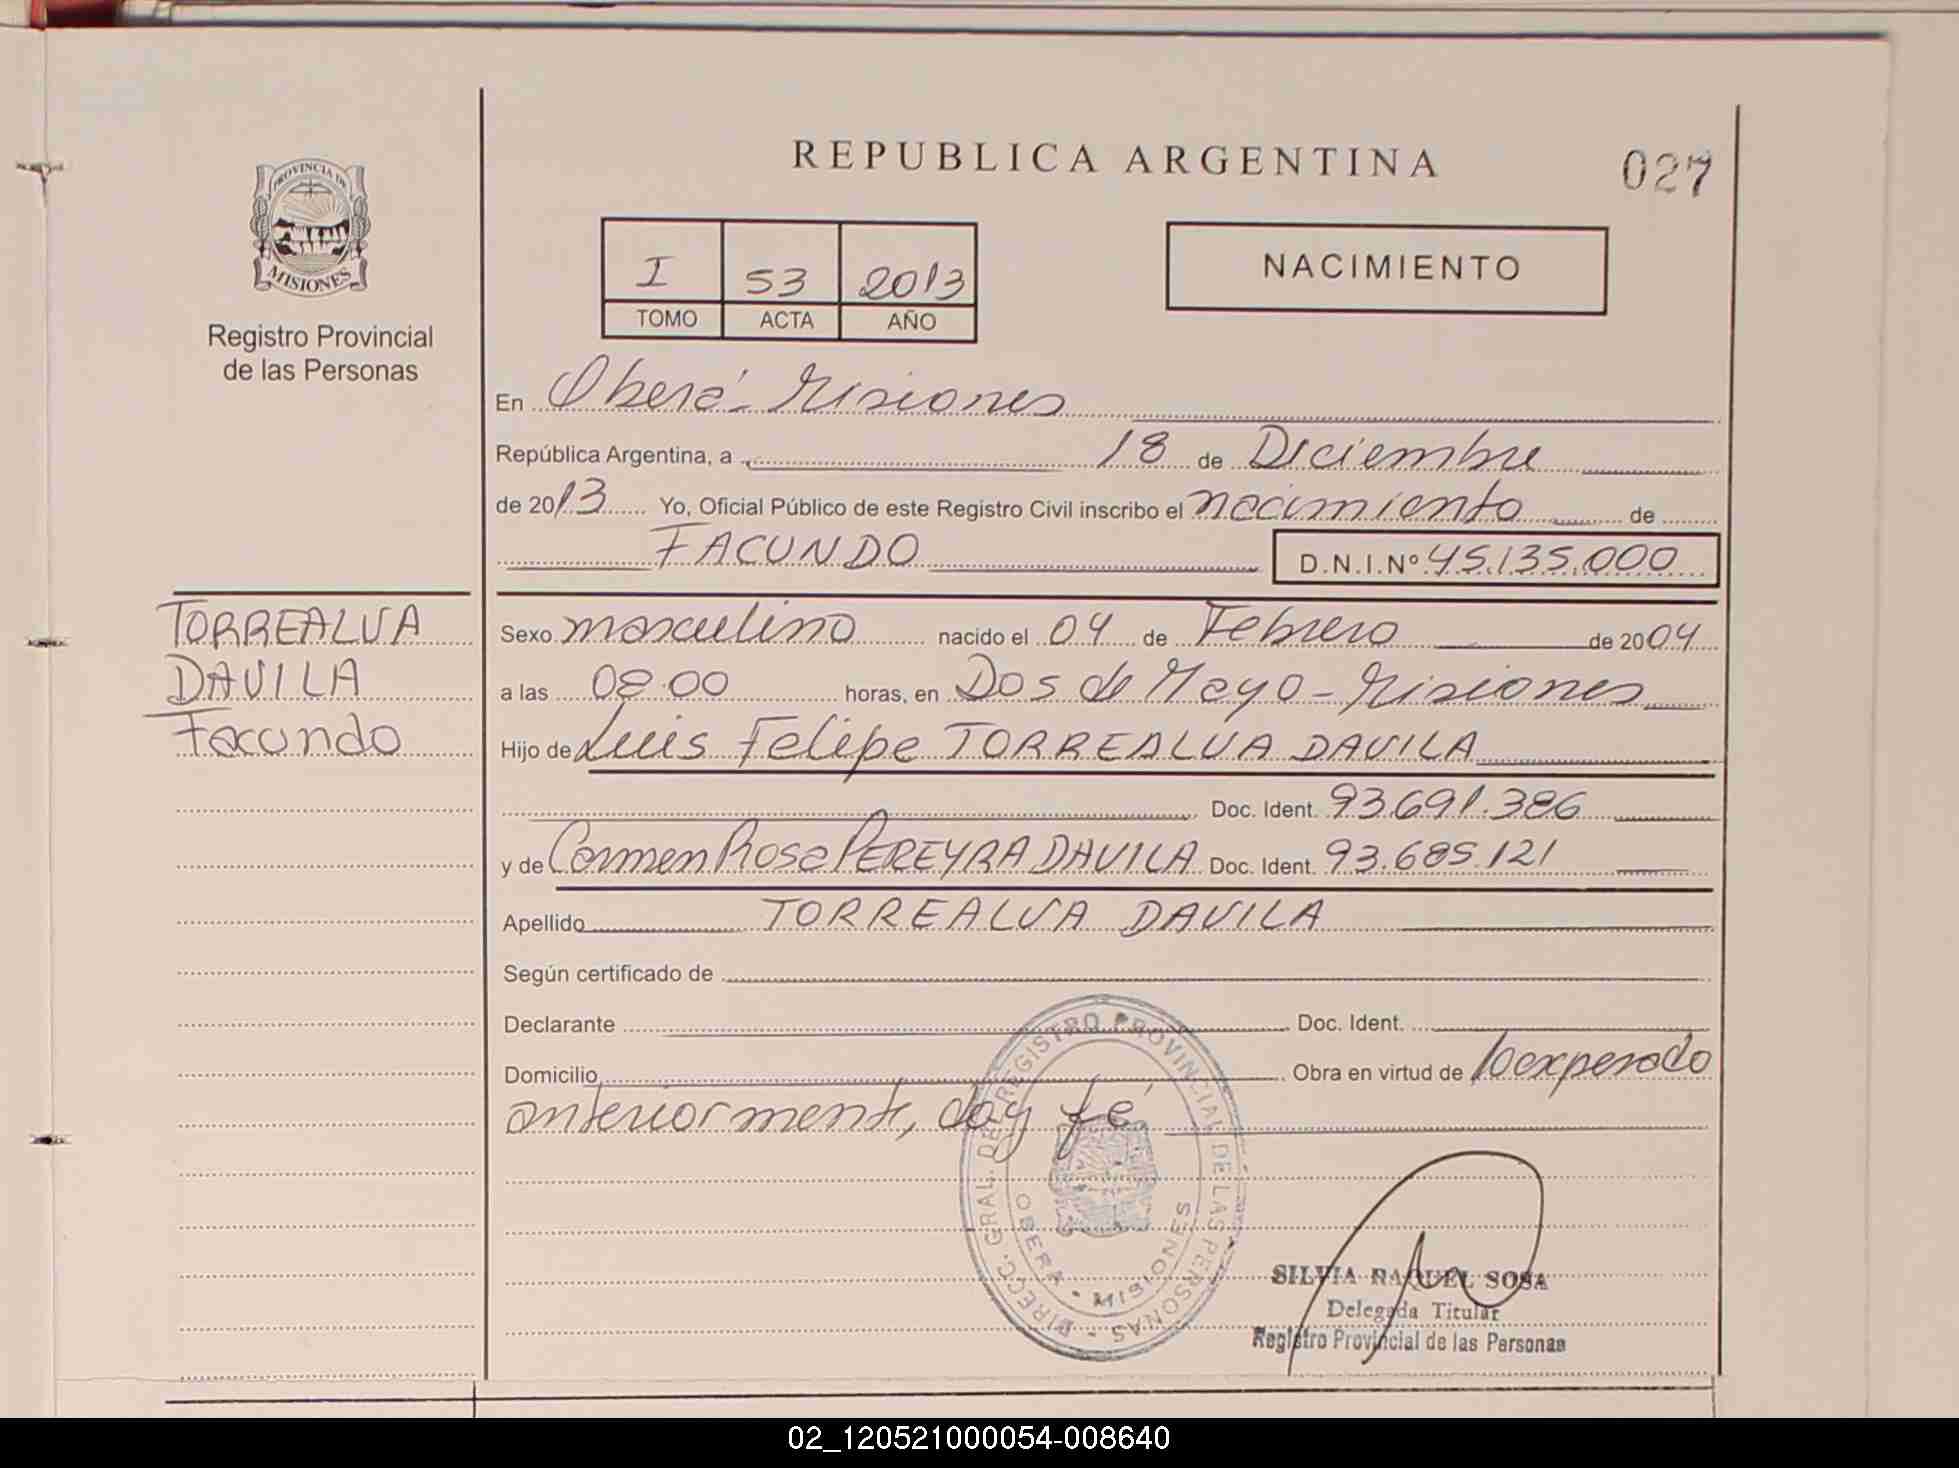 REPUBLICA ARGENTINA
027
PROVINCIA DE
MISIONES
Registro Provincial
de las Personas
I 53 2013
TOMO ACTA AÑO
NACIMIENTO
En Oberá - Misiones
República Argentina, a 18 de Diciembre
de 2013 Yo, Oficial Público de este Registro Civil inscribo el nacimiento de
FACUNDO D.N.I.Nº 45.135.000
TORREALVA
DAVILA
Facundo
Sexo masculino nacido el 04 de Febrero de 2004
a las 08.00 horas, en Dos de Mayo - Misiones
Hijo de Luis Felipe TORREALVA DAVILA
Doc. Ident. 93.691.386
y de Carmen Rosa PEREYRA DAVILA Doc. Ident. 93.685.121
Apellido TORREALVA DAVILA
Según certificado de
Declarante Doc. Ident.
Domicilio Obra en virtud de lo expresado
anteriormente, doy fé
DIRECC. GRAL. DEL REGISTRO PROVINCIAL DE LAS PERSONAS -
OBERA - MISIONES
SILVIA RAQUEL SOSA
Delegada Titular
Registro Provincial de las Personas
02_120521000054-008640